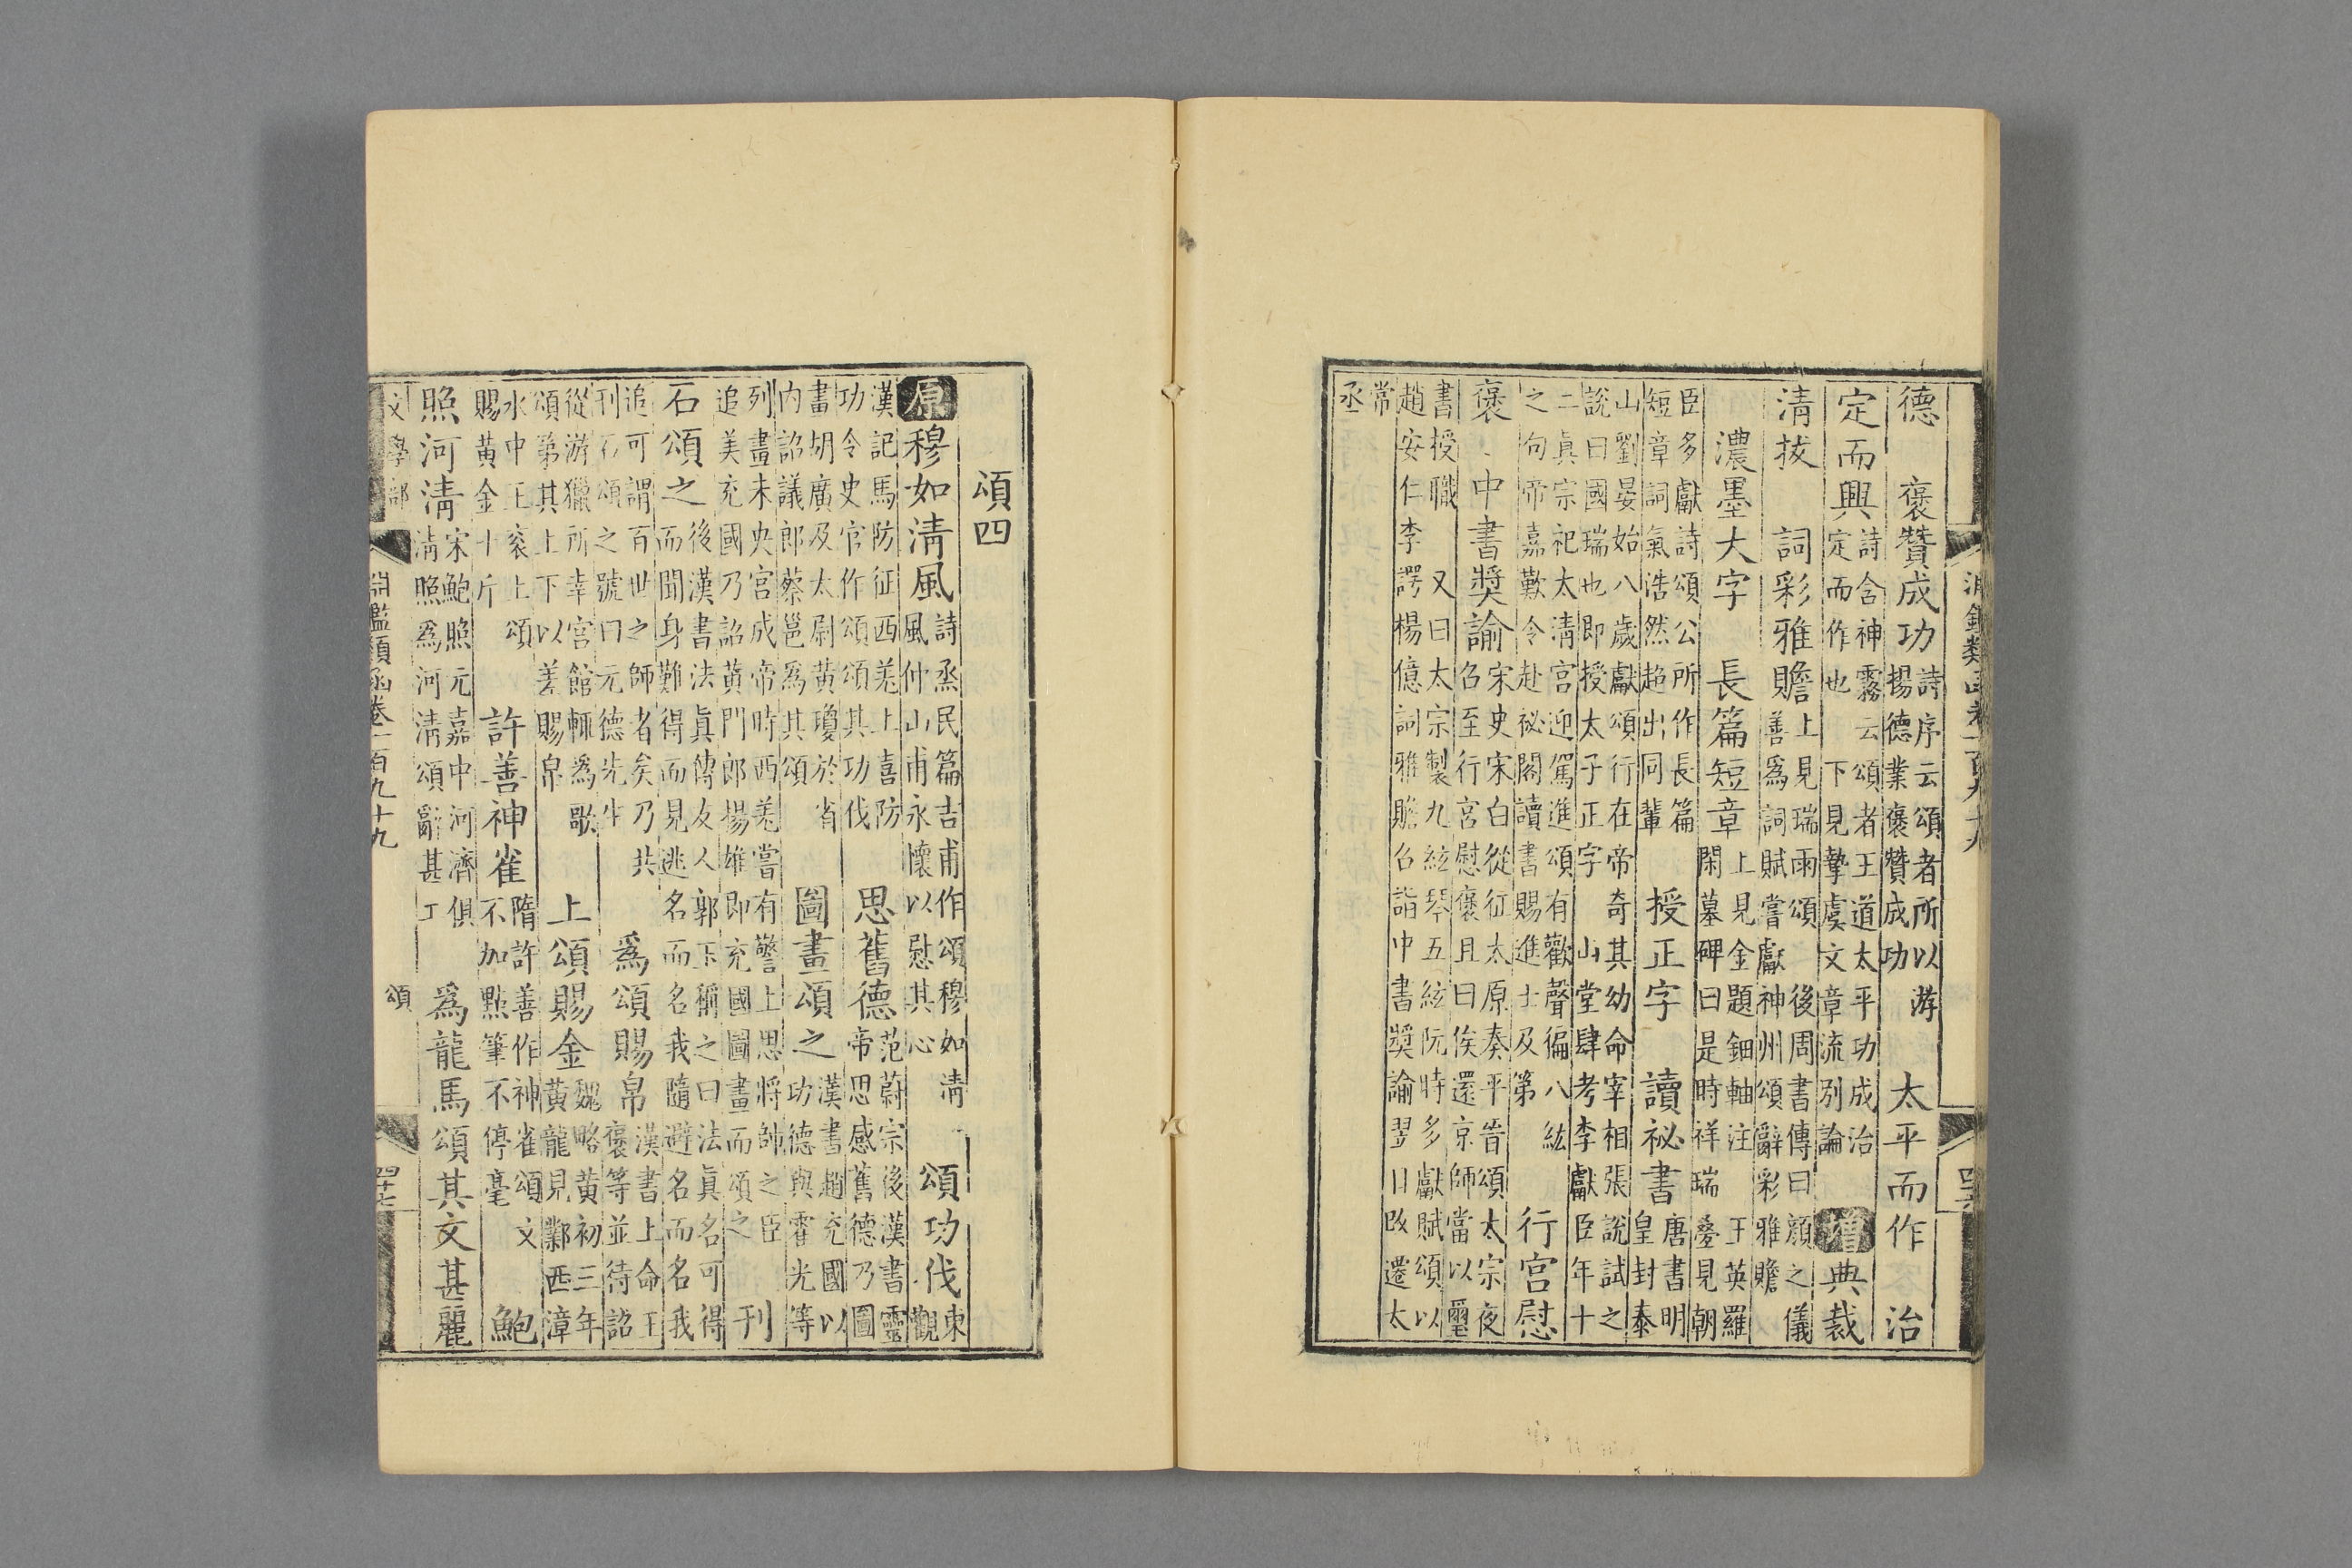 淵鑑類函卷一百九十九
德　襃贊成功
詩序云頌者所以游
揚德業襃贊成功
太平而作　治
定而興
詩含神霧云頌者王道太平功成治
定而作也　下見摯虞文章流別論
增典裁
清拔　詞彩雅贍
上見瑞雨頌　後周書傳曰顏之儀
善爲詞賦嘗獻神州頌辭彩雅贍
濃墨大字　長篇短章
上見金題鈿軸注　王英羅
閑墓碑曰是時祥瑞疊見朝
臣多獻詩頌公所作長篇
短章詞氣浩然超出同輩
授正字　讀祕書
唐書明
皇封泰
山劉晏始八歲獻頌行在帝奇其幼命宰相張說試之
說曰國瑞也即授太子正字　山堂肆考李獻臣年十
二真宗祀太清宮迎駕進頌有歡聲徧八紘
之句帝嘉歎令赴祕閣讀書賜進士及第
行宮慰
襃　中書獎諭
宋史宋白從征太原奏平晉頌太宗夜
召至行宮慰襃且曰俟還京師當以璽
書授職　又曰太宗製九絃琴五絃阮時多獻賦頌以
趙安仁李諤楊億詞雅贍召詣中書獎諭翌日改遷太
常
丞
頌四
原穆如清風
詩烝民篇吉甫作頌穆如清
風仲山甫永懷以慰其心
頌功伐
東
觀
漢記馬防征西羌上喜防
功令史官作頌頌其功伐
思舊德
范蔚宗後漢書靈
帝思感舊德乃圖
書胡廣及太尉黃瓊於省
內詔議郎蔡邕爲其頌
圖畫頌之
漢書趙充國以
功德與霍光等
列畫未央宮成帝時西羌嘗有警上思將帥之臣
追美充國乃詔黃門郎揚雄即充國圖畫而頌之
刊
石頌之
後漢書法真傳友人郭正稱之曰法真名可得
而聞身難得而見逃名而名我隨避名而名我
追可謂百世之師者矣乃共
刊石頌之號曰元德先生
爲頌賜帛
漢書上命王
襃等並待詔
從游獵所幸宮館輒爲歌
頌第其上下以差賜帛
上頌賜金
魏略黃初三年
黃龍見鄴西漳
水中王袞上頌
賜黃金十斤
許善神雀
隋許善作神雀頌文
不加點筆不停毫
鮑
照河清
宋鮑照元嘉中河濟俱
清照爲河清頌辭甚工
爲龍馬頌其文甚麗
文學部
淵鑑類函卷一百九十九
頌
四十七